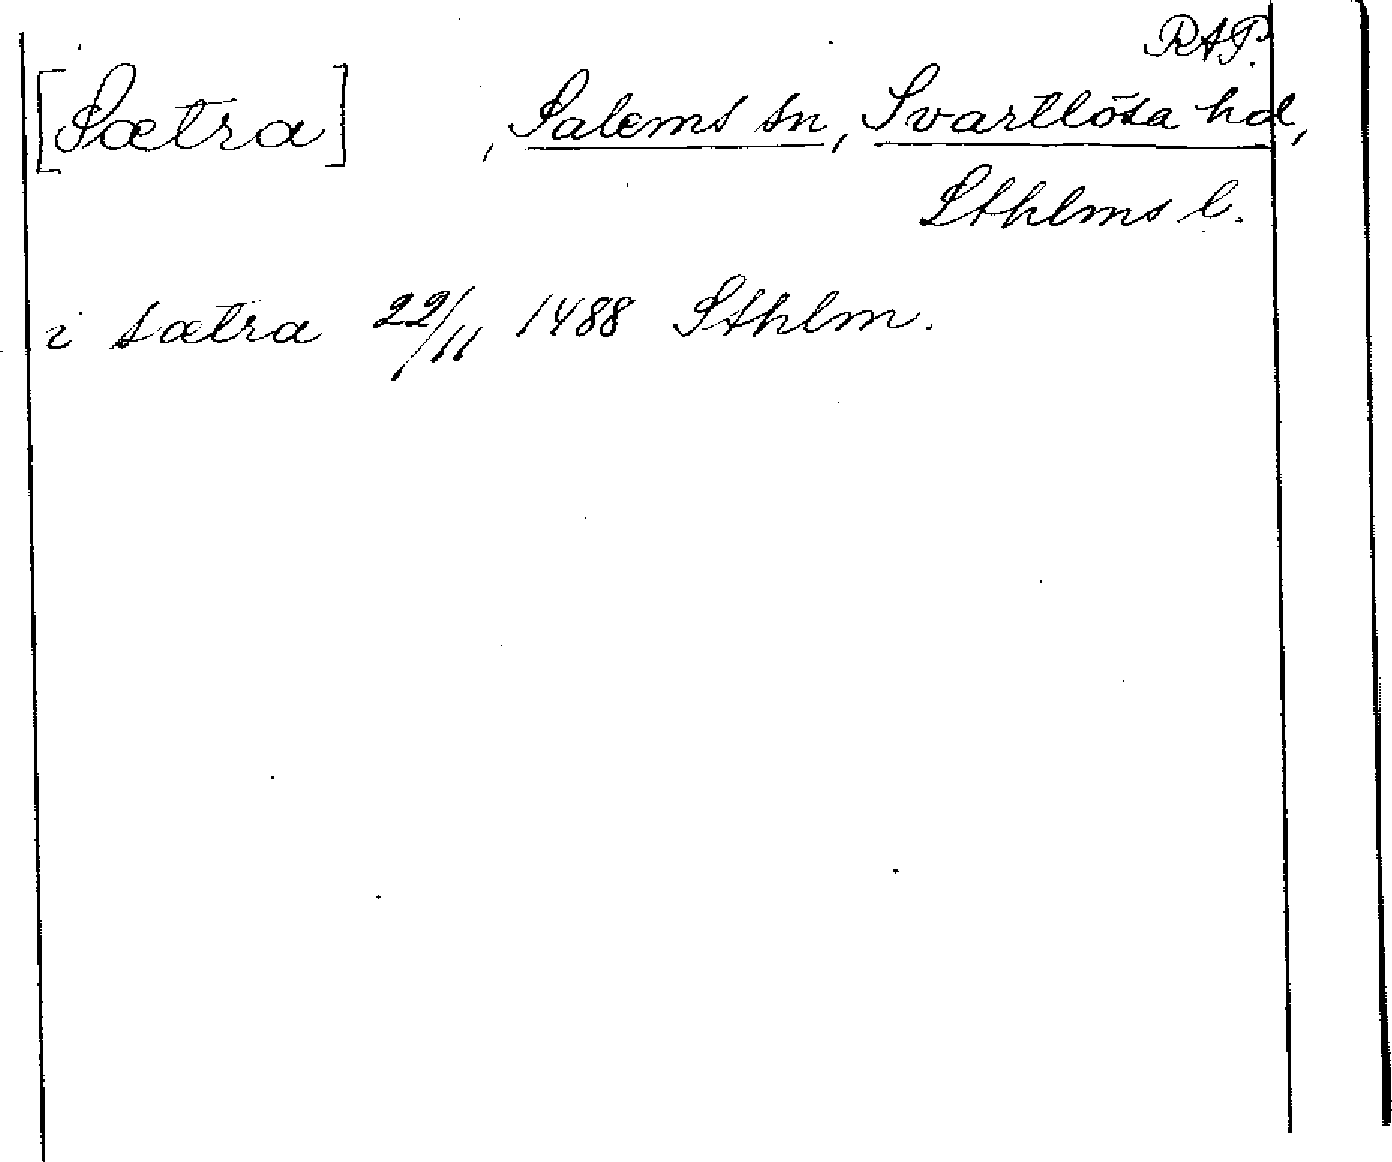 RAP.
[Sætra] , Salems sn, Svartlösa hd,
Sthlms l.
i sætra 22/11 1488 Sthlm.